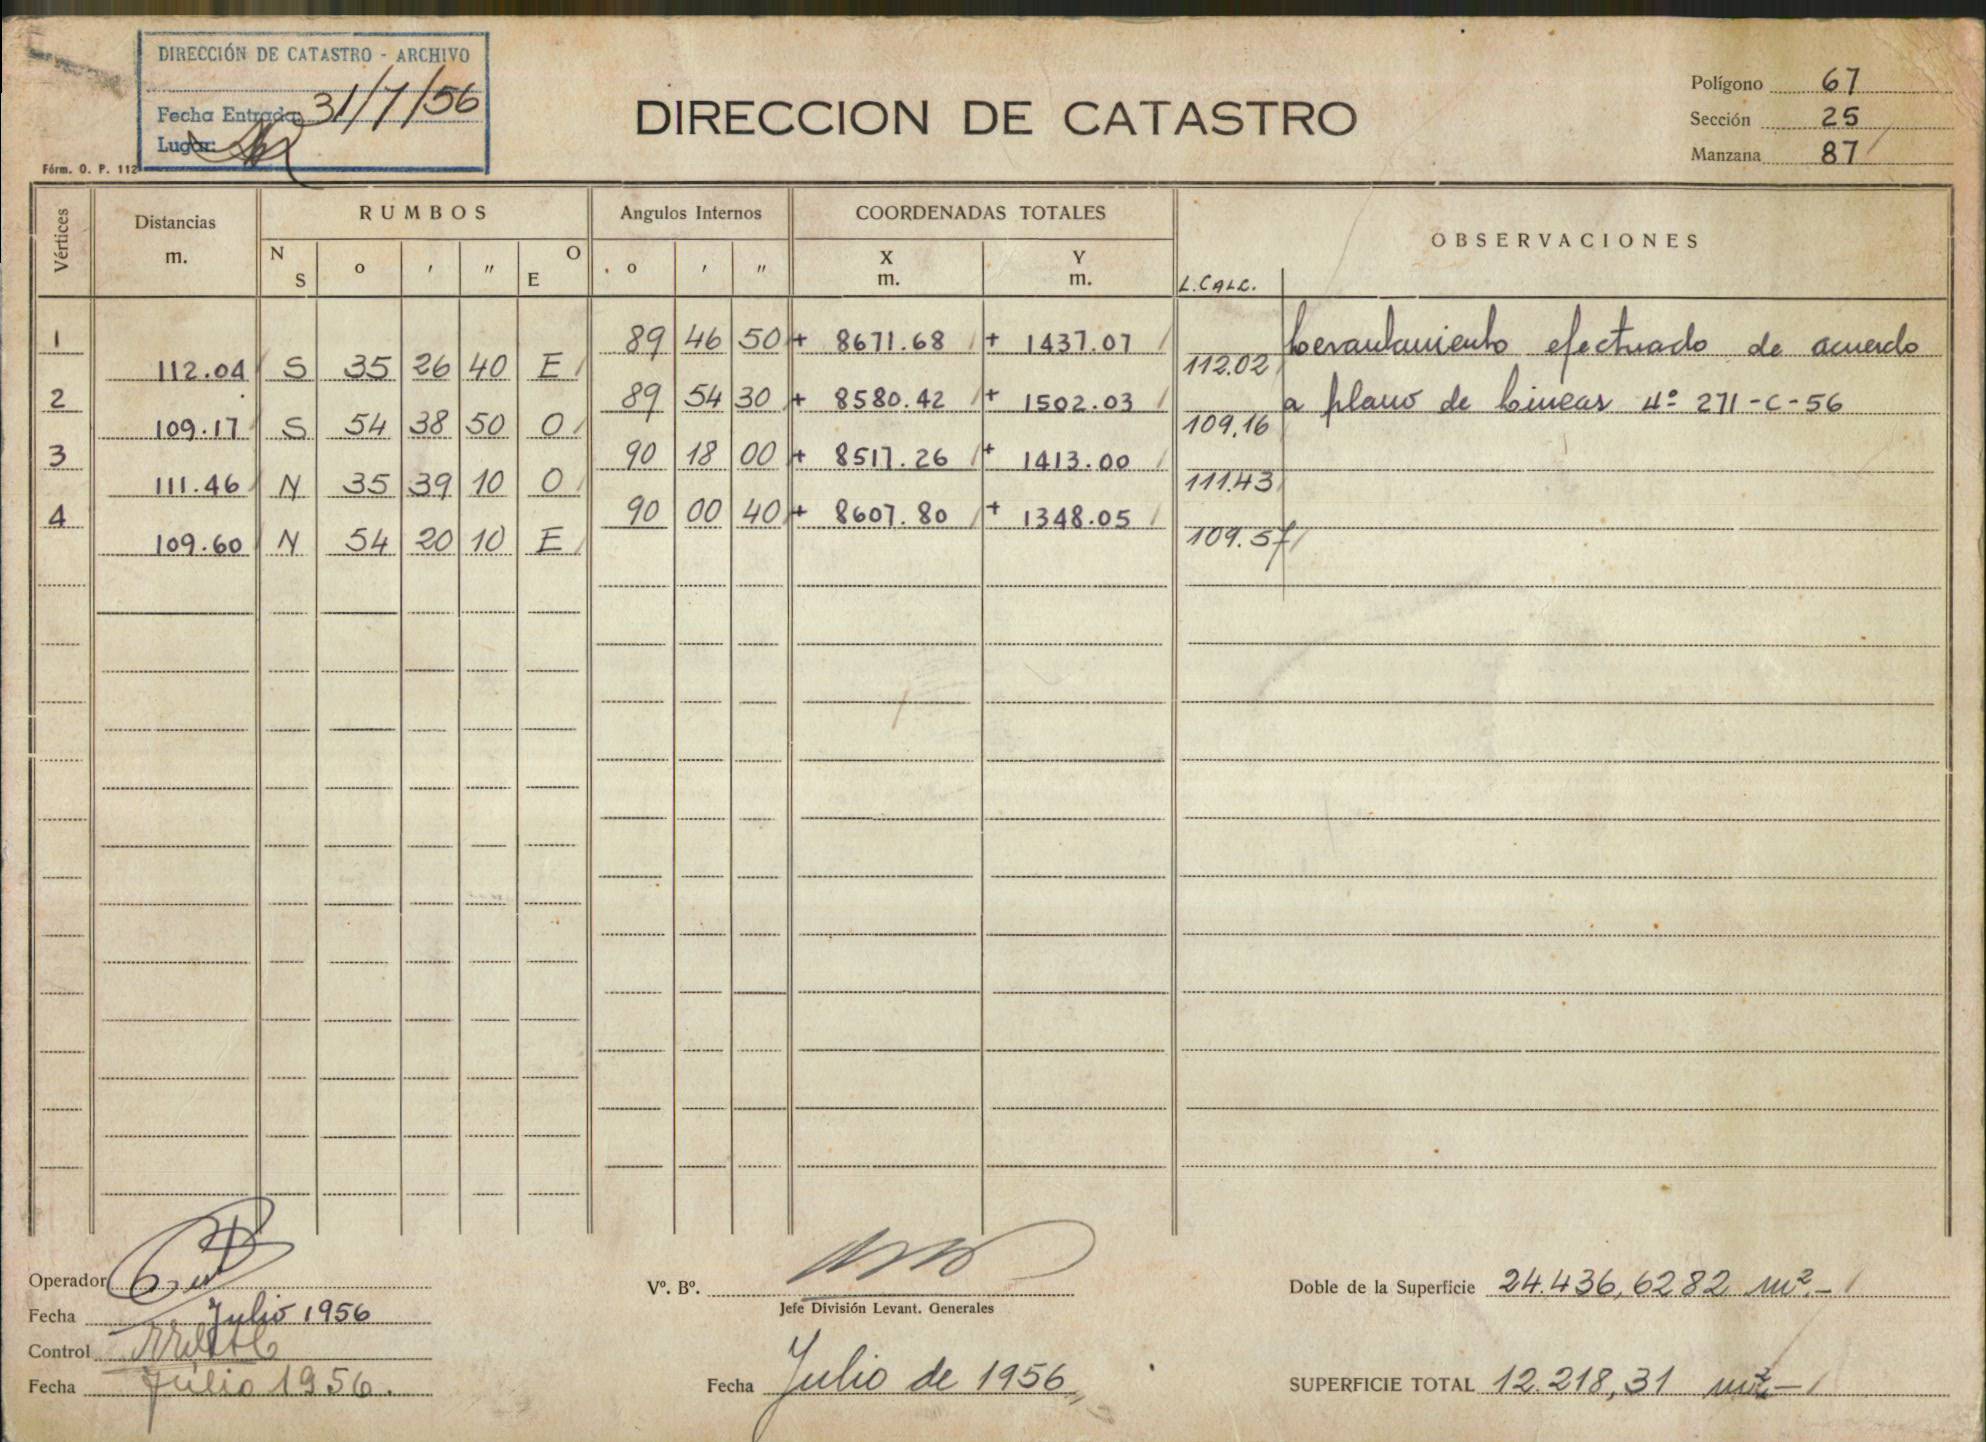 DIRECCIÓN DE CATASTRO - ARCHIVO
Fecha Entrada: 31/7/56
Lugar:
Fórm. O. P. 112
DIRECCION DE CATASTRO
Polígono 67
Sección 25
Manzana 87
Vértices Distancias m. RUMBOS Angulos Internos COORDENADAS TOTALES OBSERVACIONES
N S o ' " O E o ' " X m. Y m. L. CALC.
1 89 46 50 + 8671.68 + 1437.07 Levantamiento efectuado de acuerdo
112.04 S 35 26 40 E 112.02
2 89 54 30 + 8580.42 + 1502.03 a plano de Lineas Nº 271-C-56
109.17 S 54 38 50 O 109.16
3 90 18 00 + 8517.26 + 1413.00
111.46 N 35 39 10 O 111.43
4 90 00 40 + 8607.80 + 1348.05
109.60 N 54 20 10 E 109.57
Operador
Fecha Julio 1956
Control
Fecha Julio 1956.
Vº. Bº.
Jefe División Levant. Generales
Fecha Julio de 1956
Doble de la Superficie 24.436,6282 m².-
SUPERFICIE TOTAL 12.218,31 m²-